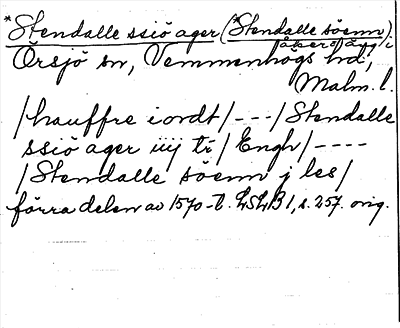 *Stendalle ssiö ager (*Stendalle söemn)
åker o äng i
Örsjö sn, Vemmenhögs hd,
Malm. l.
/hauffre iordt/---/Stendalle
ssiö ager iiij tr/Engh/----
/Stendalle söemn j les/
förra delen av 1570-t. LSLB 1, s. 257. orig.